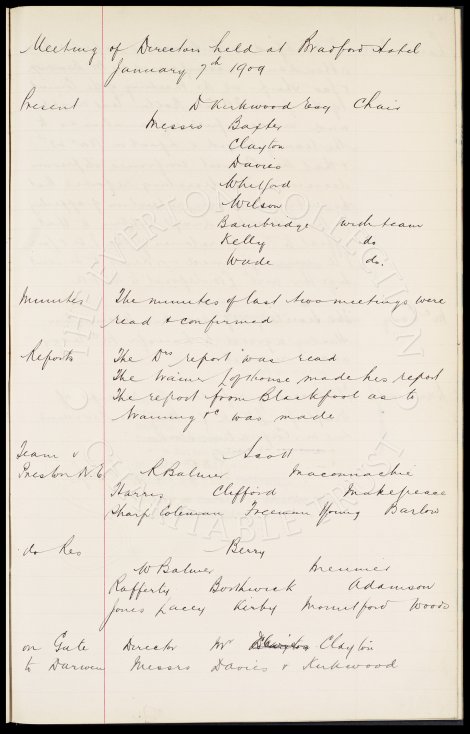 Meeting of Directors held at Bradford Hotel
January 7th 1909
Present D Kirkwood Esq Chair
Messrs Baxter
Clayton
Davies
Whitford
Wilson
Bainbridge with team
Kelly do
Wade do.
Minutes The minutes of last two meetings were
read & confirmed
Reports The Drs report was read
The trainer Lofthouse made his report
The report from Blackpool as to
training &c was made
Team v Scott
Preston N.E R Balmer Maconnachie
Harris Clifford Makepeace
Sharp Coleman Freeman Young Barlow
do Res Berry
W Balmer Meunier
Rafferty Borthwick Adamson
Jones Lacey Kirby Mountford Woods
on Gate Director Mr Clayton
to Darwen Messrs Davies & Kirkwood
THE EVERTON COLLECTION
CHARITABLE TRUST